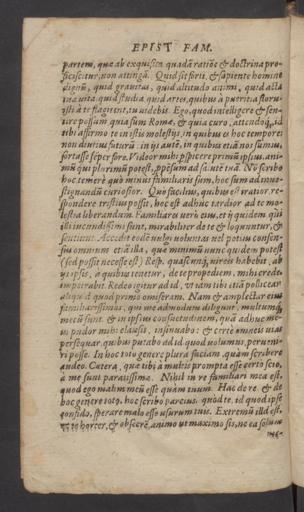 EPIST FAM.
partem, quæ ab exquisita quadã ratiõe & doctrina pro-
ficiscitur, non attingã. Quid sit forti, & sapiente homine
dignũ, quid grauitas, quid altitudo animi, quid acta
tua vita, quid studia, quid artes, quibus à pueritia floru-
isti à te flagitent, tu videbis. Ego, quod intelligere & sen-
tire possum quia sum Romæ, & quia curo, attendoq́, id
tibi affirmo te in istis molestijs, in quibus es hoc tempore
non diutius futurũ: in ijs autẽ, in quibus etiã nos sumus,
fortasse sẽper fore. Videor mihi pspicere primũ ipsius, ani-
mũ qui plurimũ potest, ppẽsum ad salutẽ tuã. Nõ scribo
hoc temerè quò minus familiaris sum, hoc sum ad inue-
stigandũ curiosior. Quo faciliùs, quibus est iratior, re-
spondere tristius possit, hoc est adhuc tardior ad te mo-
lestia liberandum. Familiares verò eius, et ij quidem qui
illi iucundissimi sunt, mirabiliter de te & loquuntur, &
sentiunt. Accedit eodẽ vulgi voluntas vel potius consen-
sus omnium etiã illa, quæ minimũ nunc quidem potest
(sed possit necesse est) Resp. quascunq́, vireis habebit, ab
ijs ipsis, à quibus tenetur, de te propediem, mihi crede
impetrabit. Redeo igitur ad id, vt iam tibi etiã pollicear
aliquid quod primo omiseram. Nam & amplectar eius
familiarissimos, qui me admodum diligunt, multumq́
mecũ sunt & in ipsius consuetudinem, quã adhuc me-
us pudor mihi clausit, insinuabo: & certè omneis uias
persequar, quibus putabo ad id quod uolumus, perueni-
ri posse. In hoc toto genere plura faciam, quàm scribere
audeo. Cætera, quæ tibi à multis prompta esse certo scio,
à me sunt paratissima. Nihil in re familiari mea est,
quod ego malim meũ esse quàm tuum. Hac de re, & de
hoc genere toto, hoc scribo parcius, quòd te, id quod ipse
confido, sperare malo esse usurum tuis. Extremũ illd est,
vt te horter, & obsecrẽ, animo ut maximo sis, ne ea solum